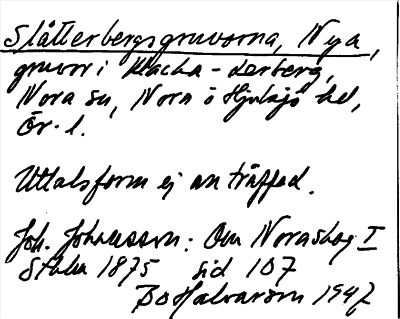 Slätterbergsgruvorna, Nya,
gruvor i Klacka-Lerberg,
Nora sn, Nora o Hjulsjö hd,
Ör. l.
Uttalsform ej anträffad.
Joh. Johansson: Om Noraskog I
Sthlm 1875 sid 107
Bo Halvarson 1947